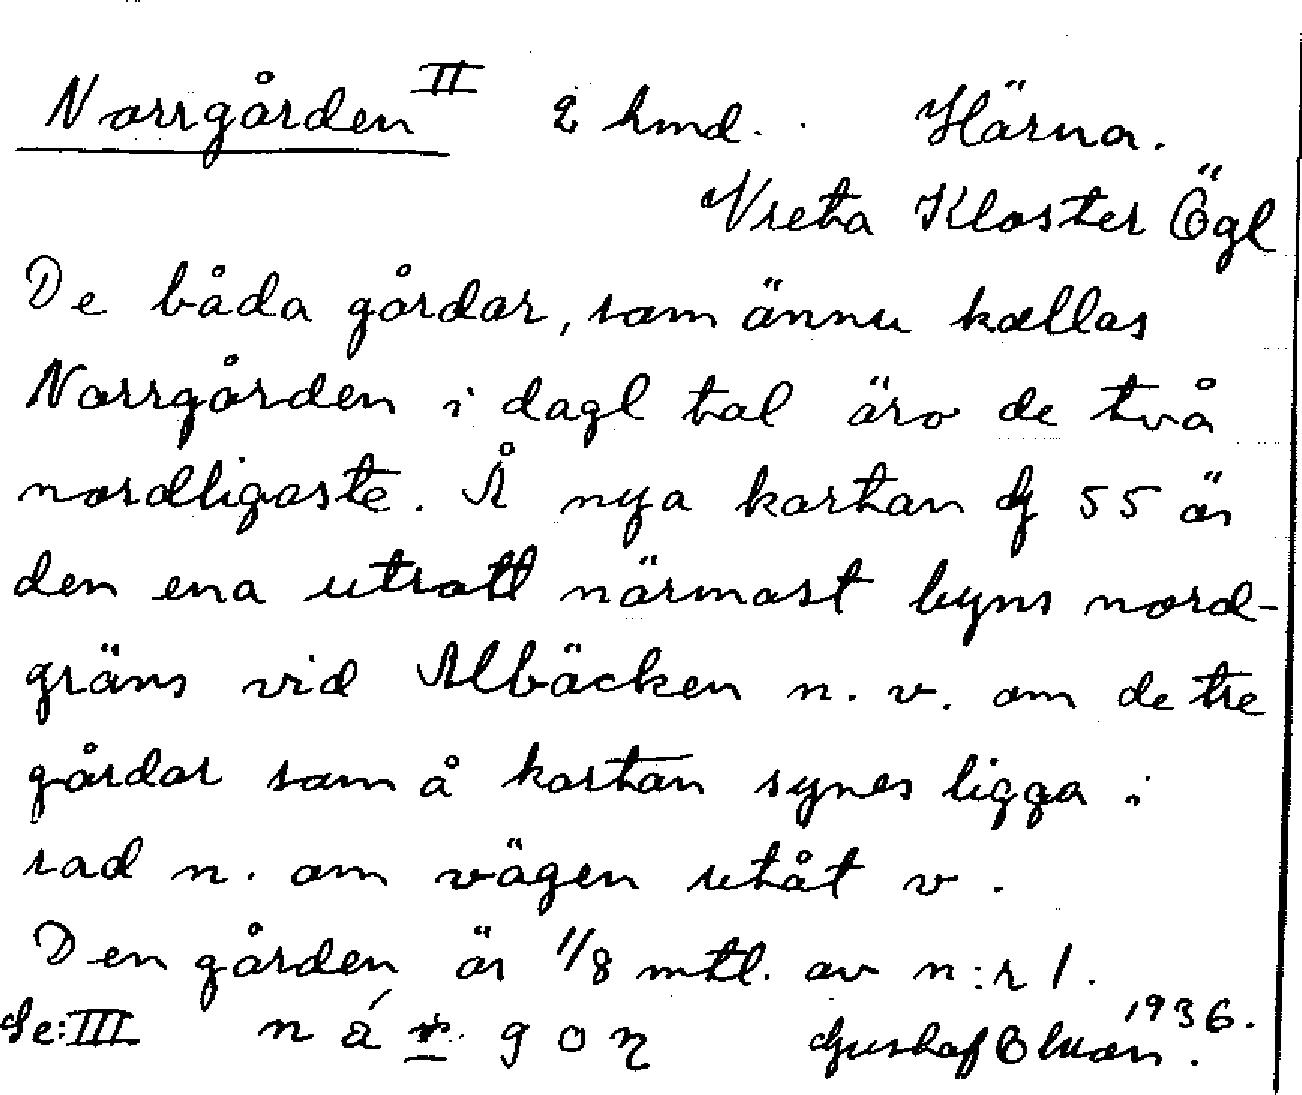 Norrgården II 2 hmd. Härna.
Vreta Kloster Ögl
De båda gårdar, som ännu kallas
Norrgården i dagl tal äro de två
nordligaste. Å nya kartan af 55 är
den ena utsatt närmast byns nord-
gräns vid Albäcken n. v. om de tre
gårdar som å kartan synes ligga i
rad n. om vägen utåt v.
Den gården är 1/8 mtl. av n:r 1.
Se: III 1936.
Gustaf